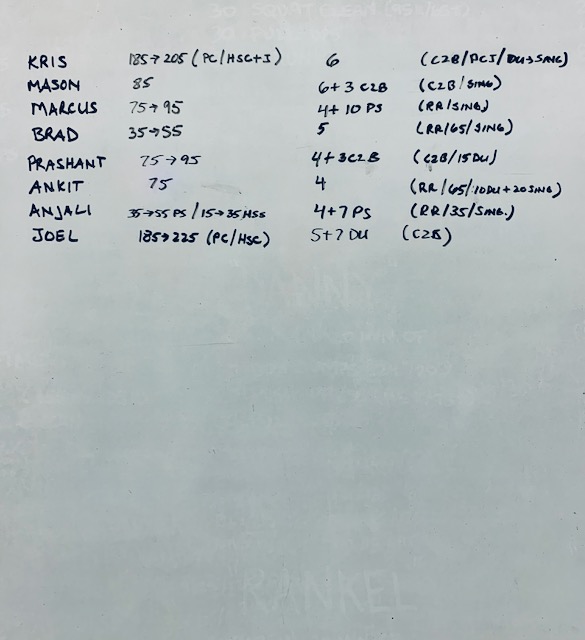 KRIS 185→205 (PC/HSC+J) 6 (C2B/PCJ/DU→SING)
MASON 85 6+3 C2B (C2B/SING)
MARCUS 75→95 4+10 PS (RR/SING)
BRAD 35→55 5 (RR/65/SING)
PRASHANT 75→95 4+3C2B (C2B/15DU)
ANKIT 75 4 (RR/65/10DU+20SING)
ANJALI 35→55 PS/15→35 HSS 4+7 PS (RR/35/SING.)
JOEL 185→225 (PC/HSC) 5+7 DU (C2B)
RANKEL